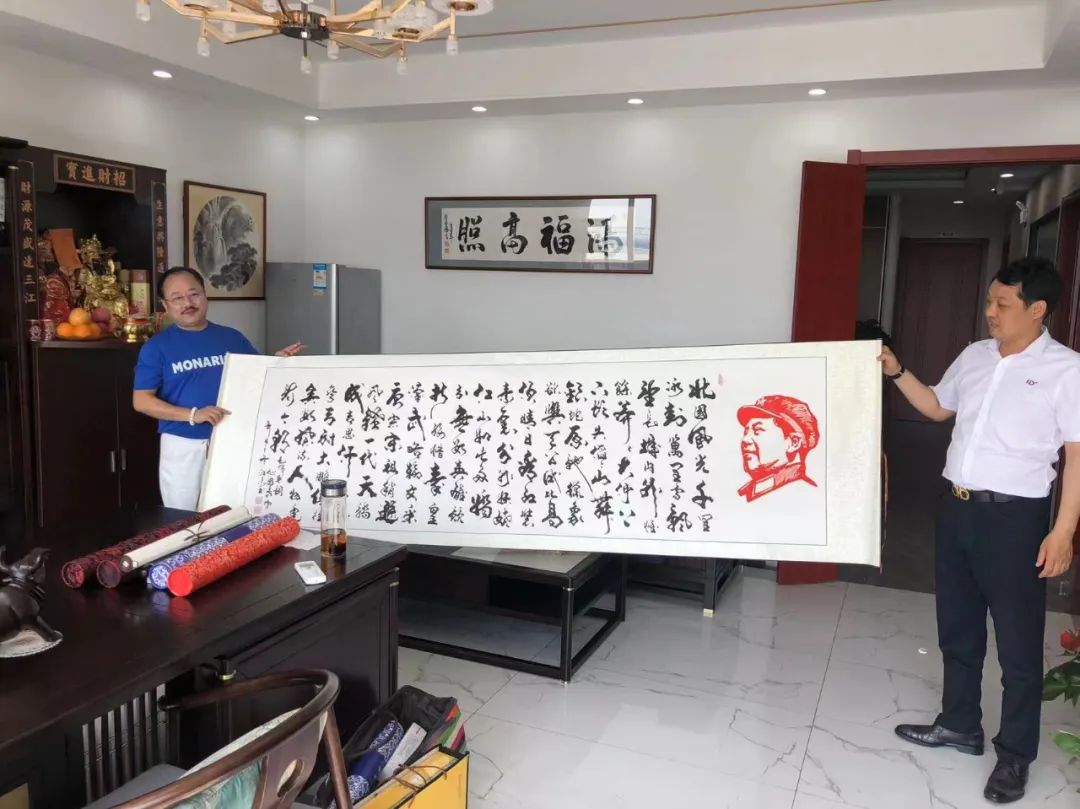 招財進寶
生意興隆通
財源茂盛達三江
鴻福高照
MONARI
北國風光千里
冰封萬里雪飄
望長城內外惟
餘莽大河上下
頓失滔滔山舞
銀蛇原馳蠟象
欲與天公試比高
須晴日看紅裝
素裹分外妖嬈
江山如此多嬌
引無數英雄競
折腰惜秦皇
漢武略輸文采
唐宗宋祖稍遜
風騷一代天驕
成吉思汗
彎弓射大雕俱往
矣數風流人物還
看今朝